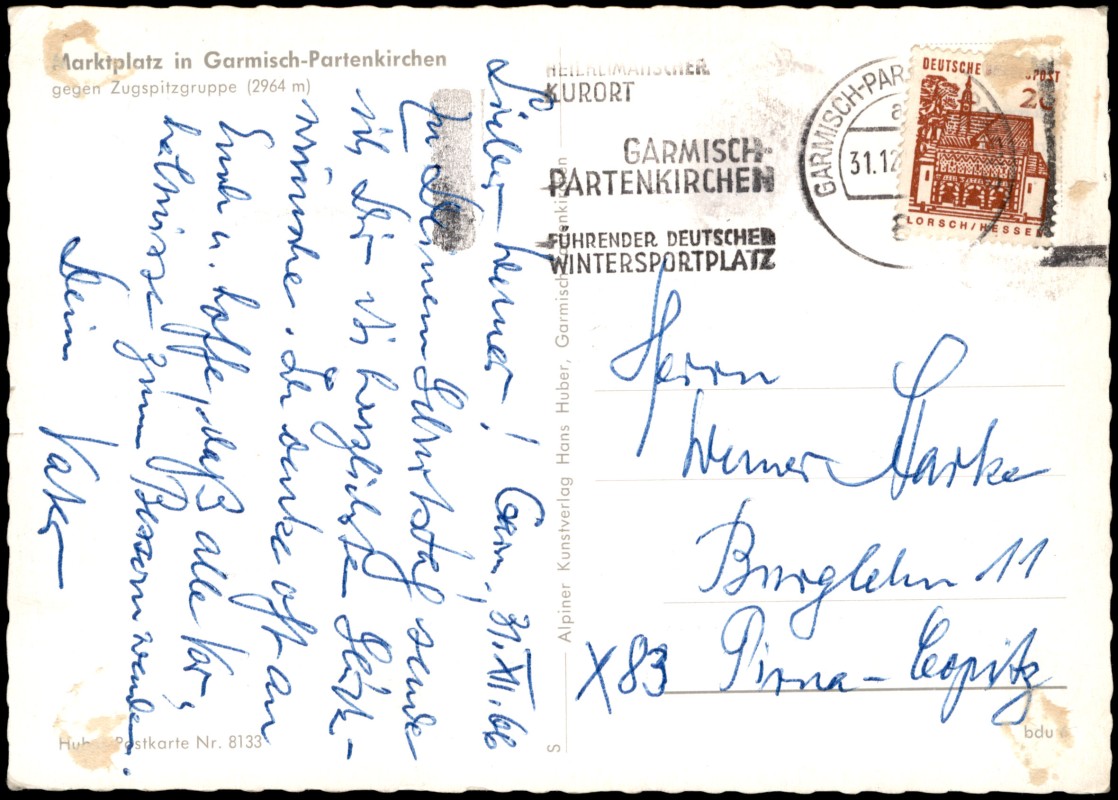 Marktplatz in Garmisch-Partenkirchen
gegen Zugspitzgruppe (2964 m)
Lieber Werner! Garm., 31.XII.66
Zu Deinem Geburtstag sende
ich Dir die herzlichsten Glück-
wünsche. Ich denke oft an
Euch u. hoffe, daß alle Ver-
hältnisse zum Bessern wenden.
Dein Vater
Huber Postkarte Nr. 8133
Alpiner Kunstverlag Hans Huber, Garmisch-Partenkirchen
S
HEILKLIMATISCHER
KURORT
GARMISCH-
PARTENKIRCHEN
FÜHRENDER DEUTSCHER
WINTERSPORTPLATZ
GARMISCH-PAR
31.12
DEUTSCHE POST
20
LORSCH/HESSEN
Herrn
Werner Starke
Burglehn 11
X83 Pirna-Copitz
bdu